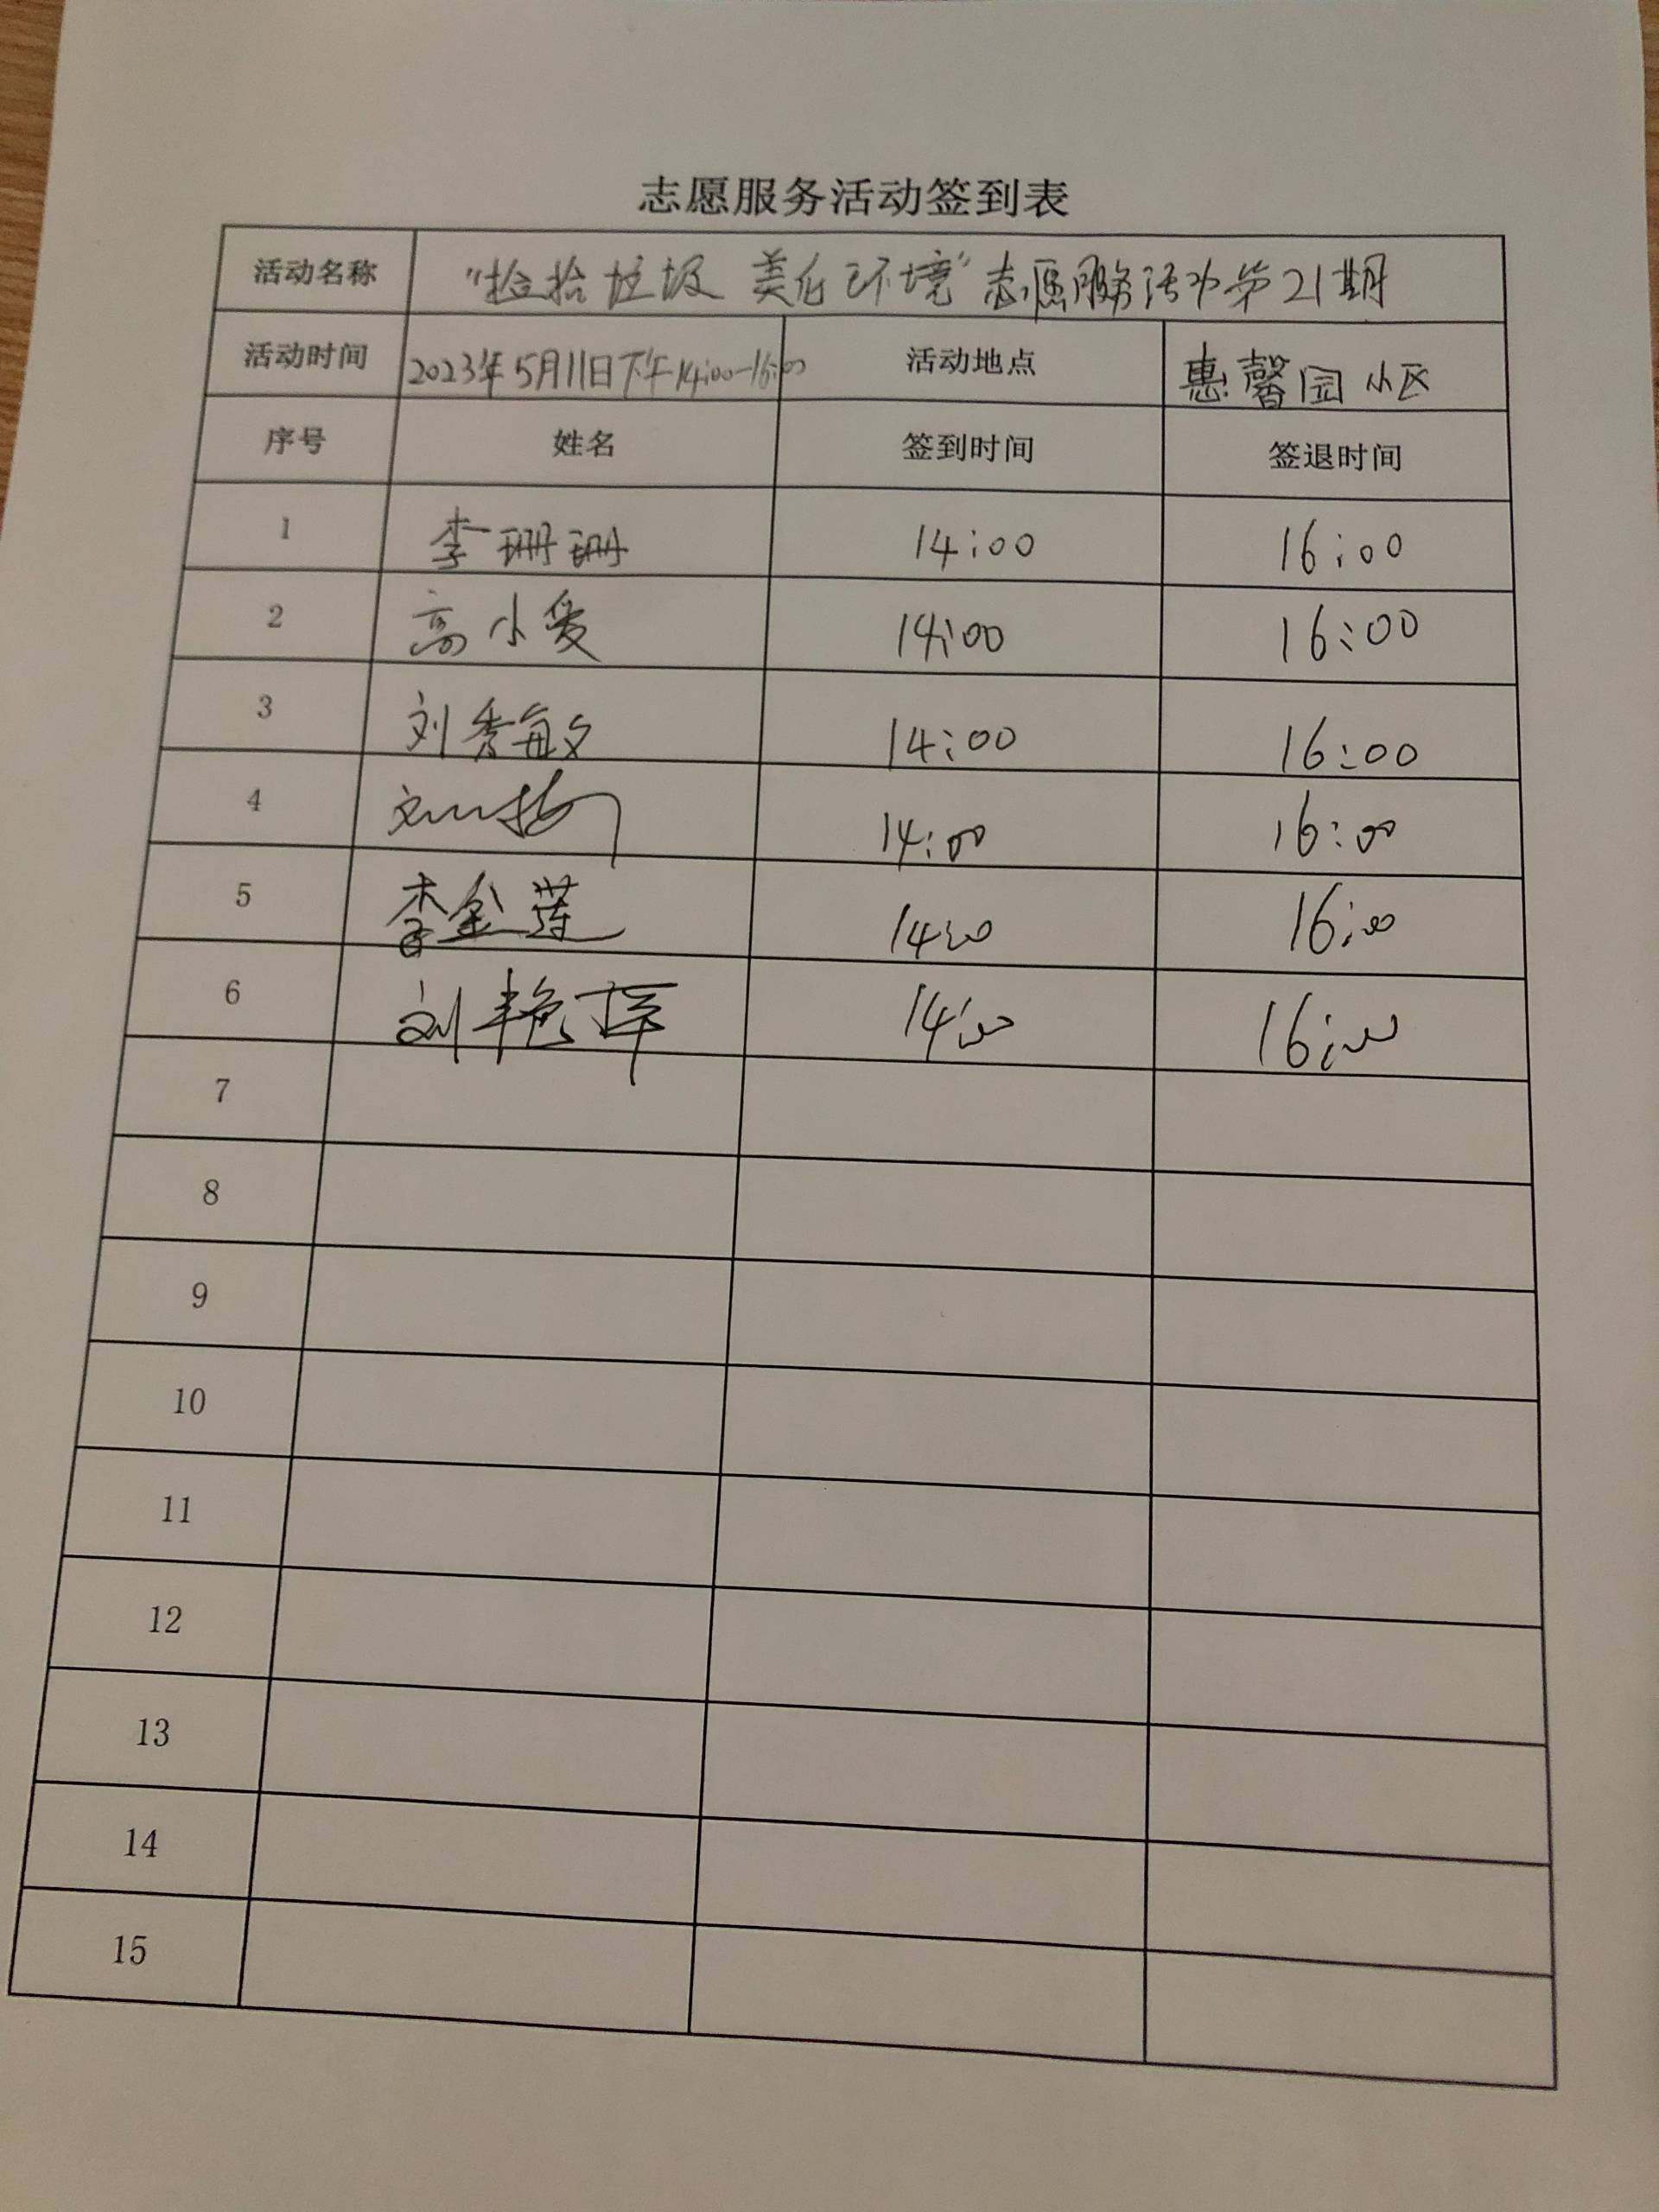 志愿服务活动签到表
活动名称 "捡拾垃圾 美化环境"志愿服务活动第21期
活动时间 2023年5月11日下午14:00-16:00 活动地点 惠馨园小区
序号 姓名 签到时间 签退时间
1 李珊珊 14:00 16:00
2 高小爱 14:00 16:00
3 刘秀敏 14:00 16:00
4 刘杨 14:00 16:00
5 李金莲 14:00 16:00
6 刘艳萍 14:00 16:00
7
8
9
10
11
12
13
14
15